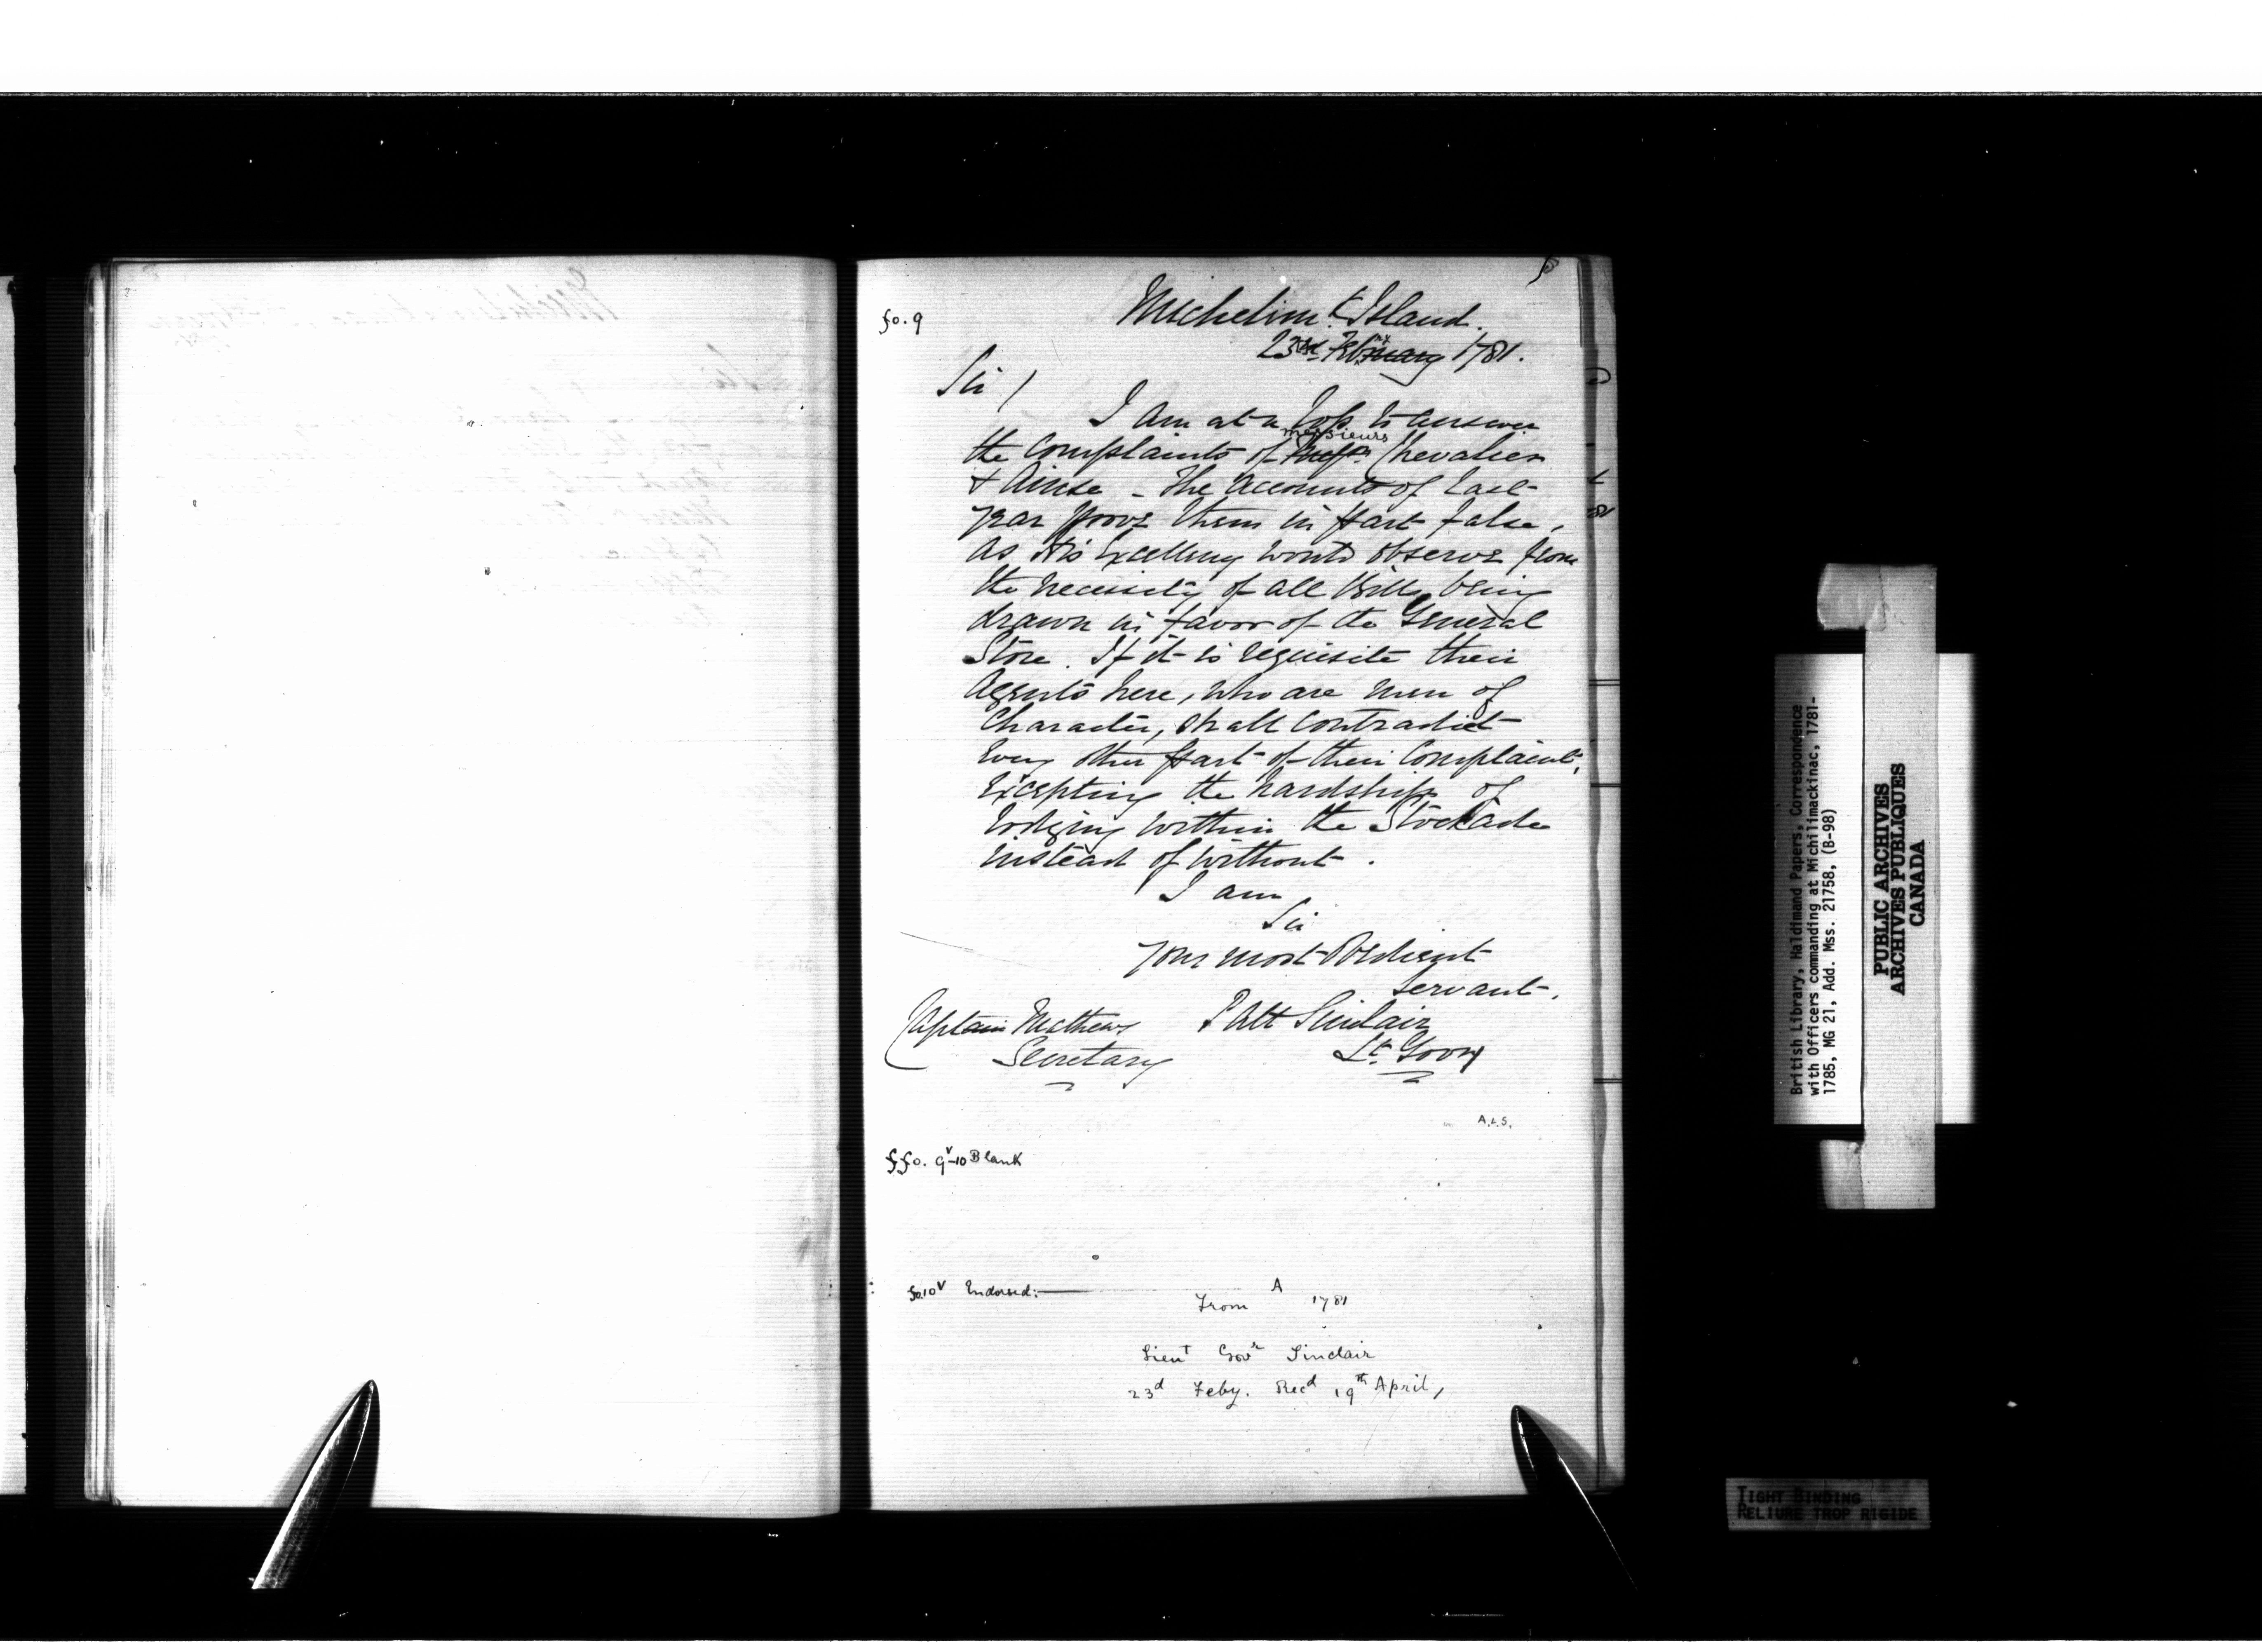 fo. 9
Michelimk. Island.
23rd Feby 1781.
Sir /
I am at a loss to answer
the complaints of messieurs Chevalier
& Ainse - The Accounts of last
year prove them in part false,
as His Excellency would observe from
the necessity of all Bills being
drawn in favor of the General
Store. If it is requisite their
Agents here, who are men of
Character, shall contradict
every other part of their Complaint,
excepting the hardship of
lodging within the Stockade
instead of without.
I am
Sir
your most Obedient
servant.
Captain Mathews
Secretary
Patt Sinclair
Lt. Govr
A.L.S.
ffo. 9v-10 Blank
fo. 10v Endorsed:—
A
From 1781
Lieut Govr Sinclair
23d Feby. Recd 19th April,
British Library, Haldimand Papers, Correspondence
with Officers commanding at Michilimackinac, 1781-
1785, MG 21, Add. Mss. 21758, (B-98)
PUBLIC ARCHIVES
ARCHIVES PUBLIQUES
CANADA
TIGHT BINDING
RELIURE TROP RIGIDE